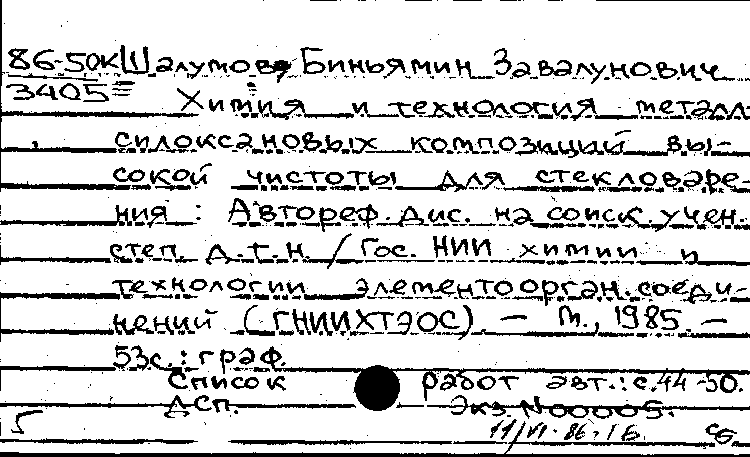 86-50к Шалумов, Биньямин Завалунович
3405
Химия и технология металл
силоксановых композиций вы-
сокой чистоты для стекловаре-
ния : Автореф. дис. на соиск. учен.
степ. д.т.н / Гос. НИИ химии и
технологии элементоорган. соеди-
нений (ГНИИХТЭОС). – М., 1985. –
53с.: граф.
Список работ авт.: с.44-50.
ДСП. Экз. N00005.
5 11/VI-86. СБ